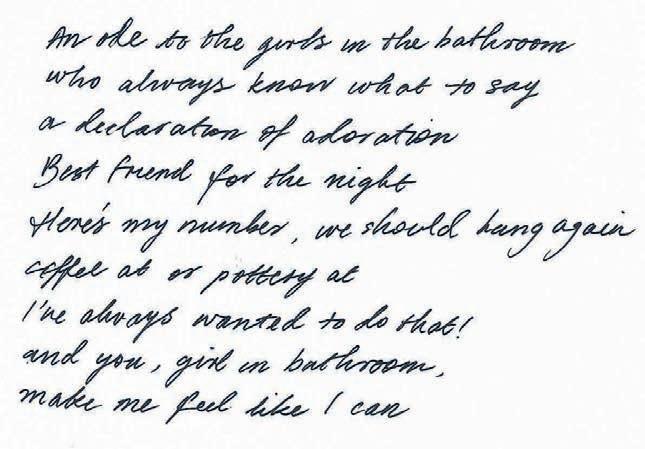 An ode to the girls in the bathroom
who always know what to say
a declaration of adoration
Best friend for the night
Here's my number, we should hang again
coffee at or pottery at
I've always wanted to do that!
and you, girl in bathroom,
make me feel like I can